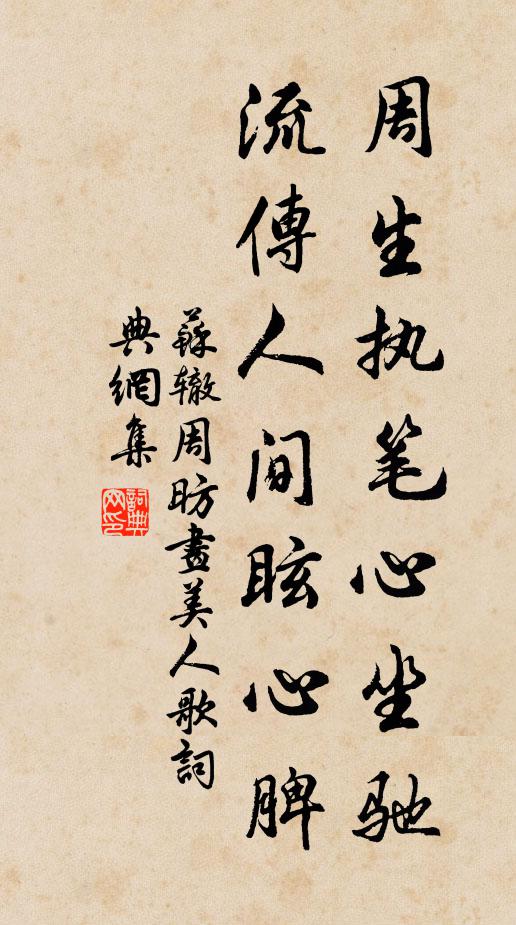 周生执笔心坐驰
流傳人间眩心脾
蘇辙周昉畫美人歌詞
典網集
詞典網印